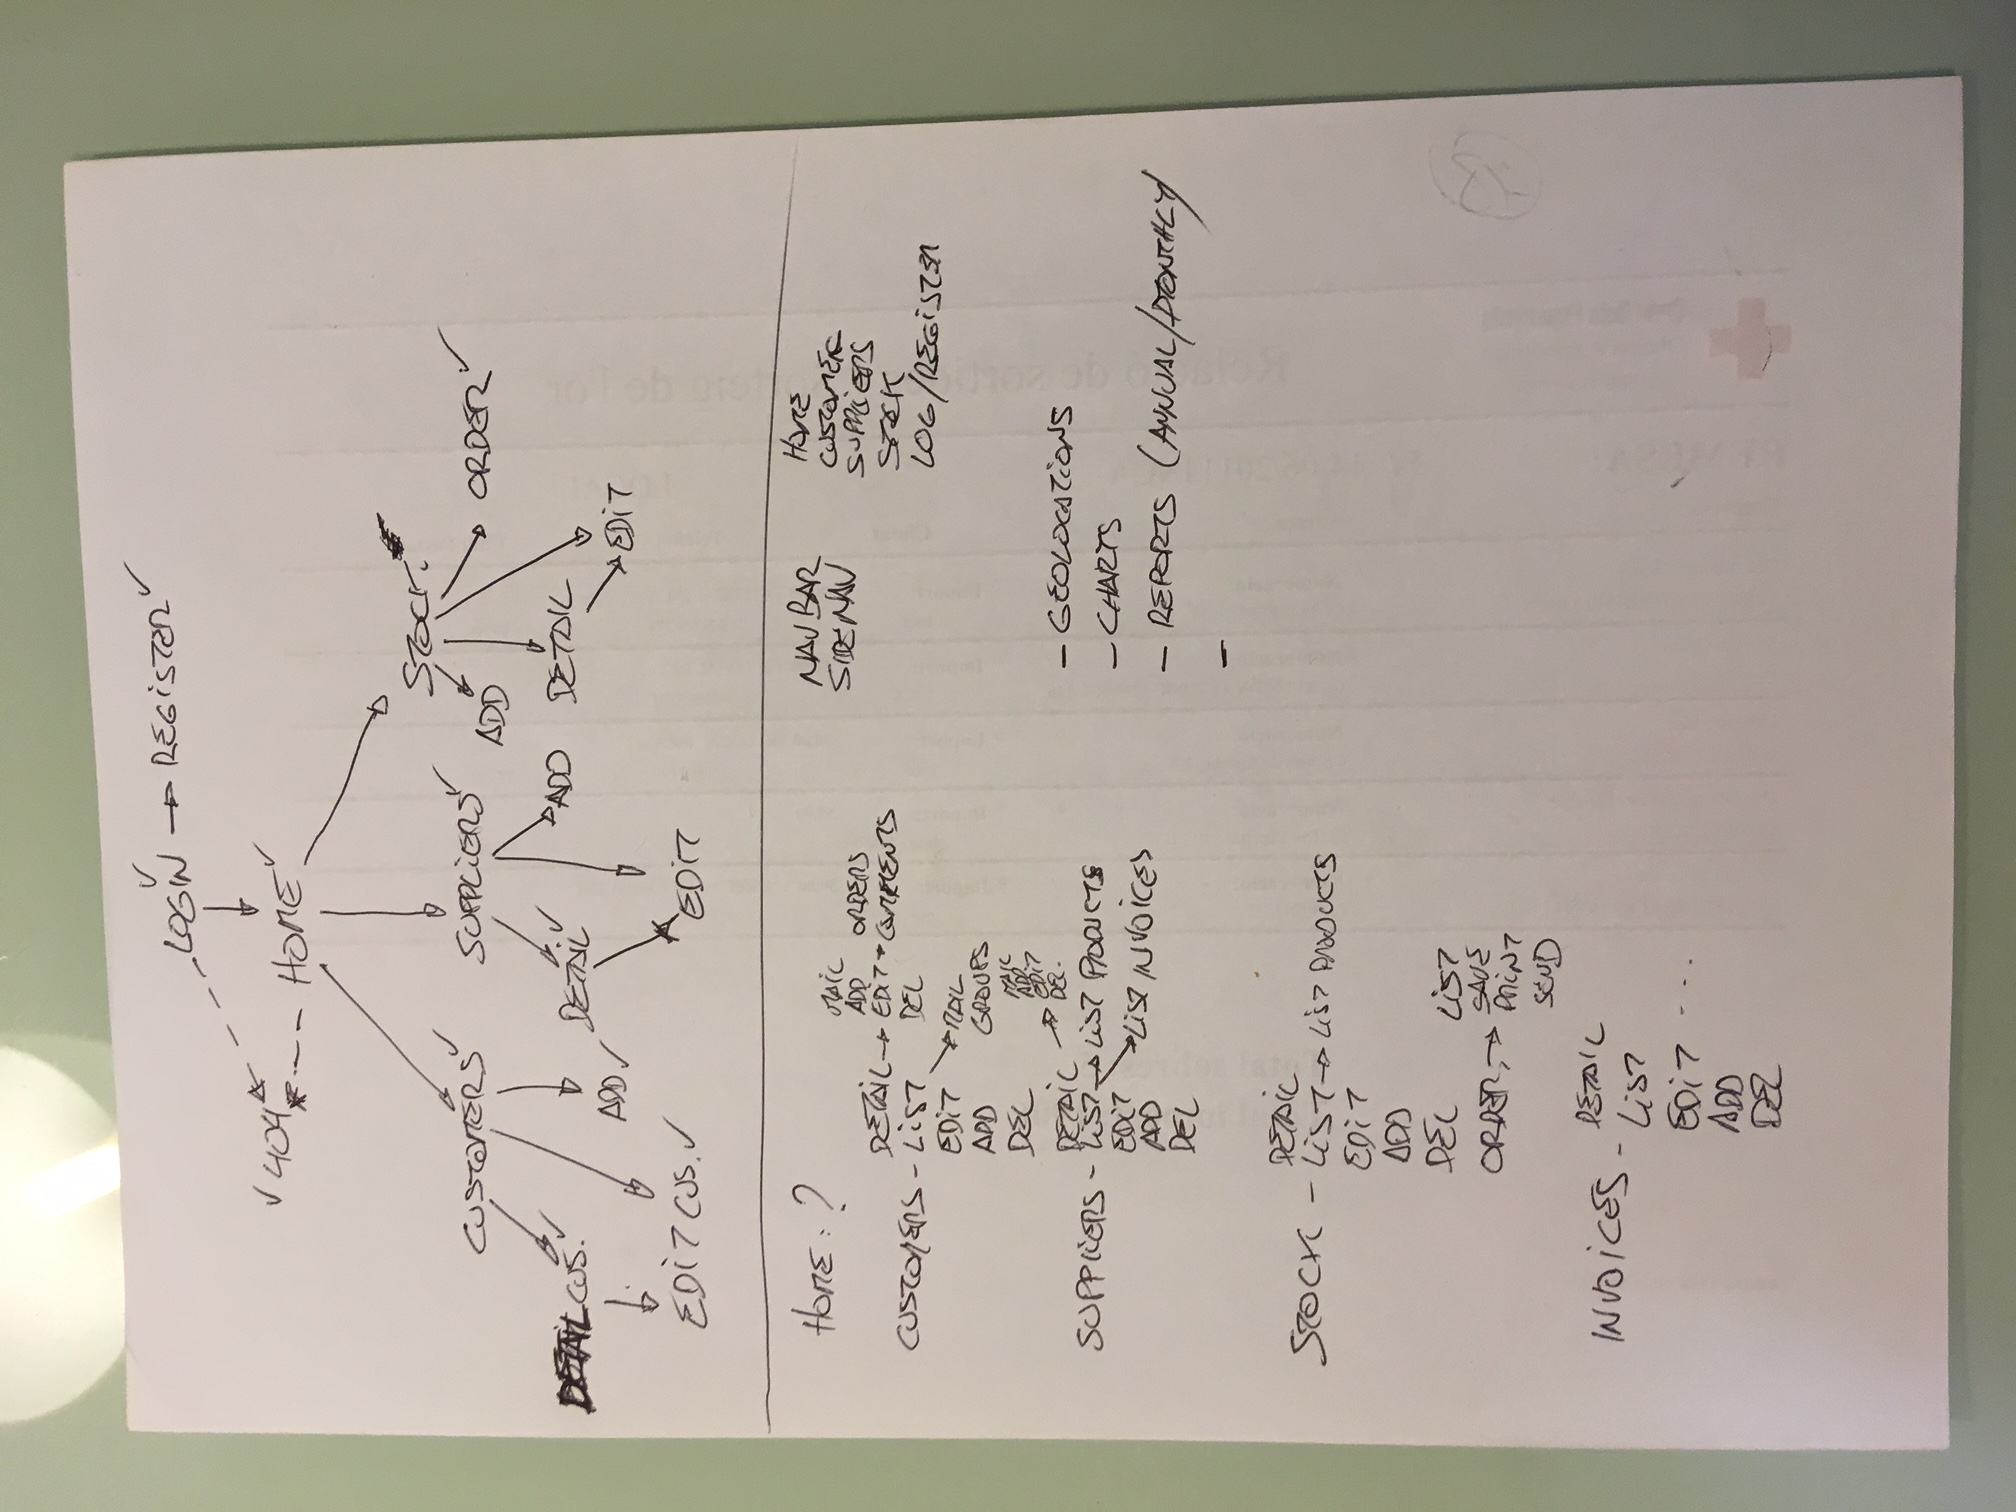 LOGIN → REGISTER
404
HOME
STOCK.
CUSTOMERS SUPPLIERS ADD ORDER
DETAIL CUS. DETAIL ADD DETAIL
ADD EDIT
EDIT CUS. EDIT
HOME: ?
CUSTOMERS -
DETAIL → EDIT → COMMENTS
MAIL
ADD ORDERS
DEL
LIST
EDIT MAIL
ADD GROUPS
DEL
SUPPLIERS -
DETAIL →
MAIL
ADD
EDIT
DEL.
LIST → LIST PRODUCTS
LIST INVOICES
EDIT
ADD
DEL
STOCK -
DETAIL
LIST → LIST PRODUCTS
EDIT
ADD
DEL
ORDER →
LIST
SAVE
PRINT
SEND
INVOICES -
DETAIL
LIST
EDIT ...
ADD
DEL
NAVBAR
SIDENAV
HOME
CUSTOMER
SUPPLIERS
STOCK
LOG/REGISTER
- GEOLOCATIONS
- CHARTS
- REPORTS (ANNUAL/MONTHLY)
-